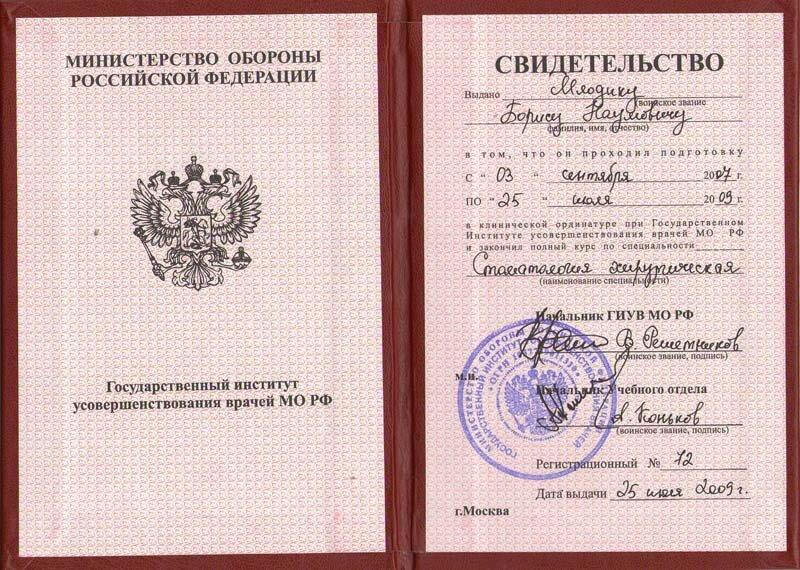 МИНИСТЕРСТВО ОБОРОНЫ
РОССИЙСКОЙ ФЕДЕРАЦИИ
Государственный институт
усовершенствования врачей МО РФ
СВИДЕТЕЛЬСТВО
Выдано Млодику
(воинское звание
Борису Наумовичу
фамилия, имя, отчество)
в том, что он проходил подготовку
С " 03 " сентября 2007 г.
ПО " 25 " июля 2009 г.
в клинической ординатуре при Государственном
Институте усовершенствования врачей МО РФ
и закончил полный курс по специальности
Стоматология хирургическая
(наименование специальности)
Начальник ГИУВ МО РФ
В. Решетников
(воинское звание, подпись)
м.п.
Начальник Учебного отдела
А. Коньков
(воинское звание, подпись)
Регистрационный № 12
Дата выдачи 25 июля 2009 г.
г.Москва